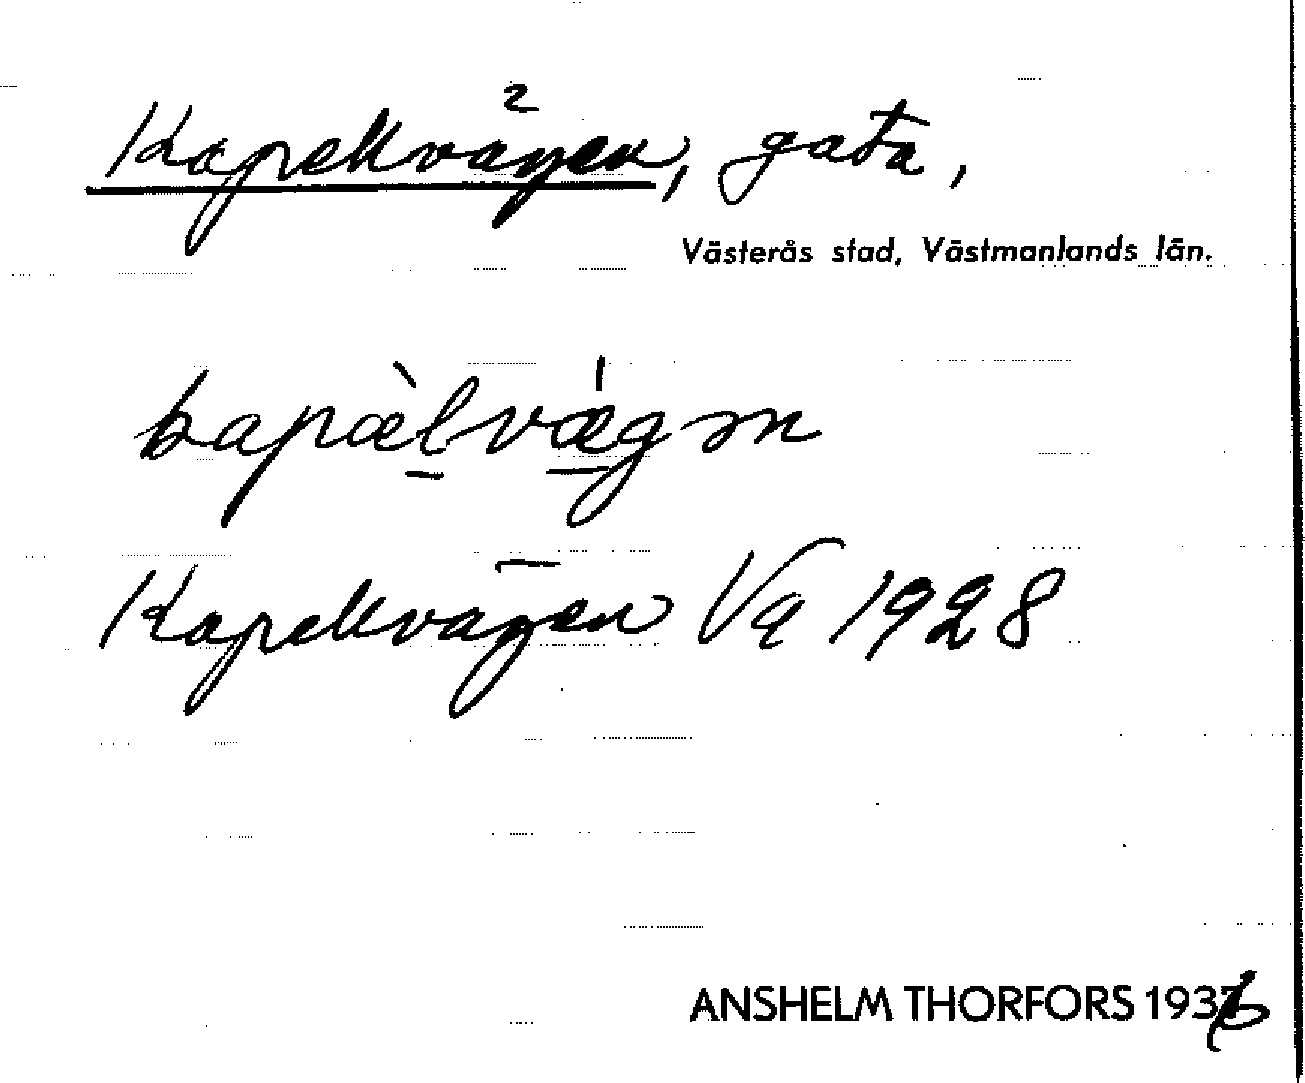 Kapellvägen, gata,
Västerås stad, Västmanlands län.
kapæ̀lvǽgən
Kapellvägen Va 1928
ANSHELM THORFORS 1936